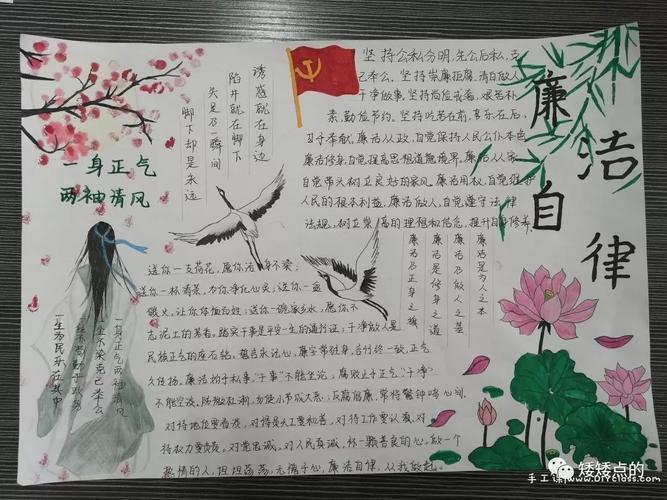 廉洁自律
一身正气
两袖清风
诱惑就在身边
陷井就在脚下
失足乃一瞬间
脚下却是永远
坚持公私分明,先公后私,克
己奉公,坚持崇廉拒腐,清白做人
干净做事,坚持尚俭戒奢,艰苦朴
素,勤俭节约,坚持吃苦在前,享乐在后,
甘于奉献,廉洁从政,自觉保持人民公仆本色
廉洁修身,自觉提高思想道德境界,廉洁从家,
自觉带头树立良好的家风,廉洁用权,自觉维护
人民的根本利益,廉洁做人,自觉遵守法律
法规,树立崇高的理想和信念,提升自身修养
廉洁是为人之本
廉洁乃做人之基
廉洁是修身之道
廉洁乃正身之魂
送你一支荷花,愿你洁身不染;
送你一杯清茶,为你净化心灵;送你一
让你
忘记工的某者,踏实干事是平安一生的通行证;干净做人是
民族正气的座右铭,誓言永记心,廉字常驻身,言行终一致,正气
久传扬,廉洁
不能空谈,防微杜渐,勿使小节成大恶;反腐倡廉,常将警钟响心间,
对待地位要看淡,对得失人要和善,对待工作要认真,对
待权力要负责,对党忠诚,对人民真诚,怀一颗善良的心,做一个
热情的人,坦坦荡荡,无愧于心,廉洁自律,从我做起。
一身正气两袖清风
一尘不染克己奉公
一生为民乐在其中
矮矮点的
手工课www.DIYclass.com